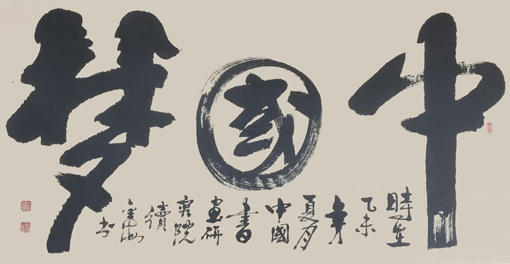 中國夢
時在
乙未
年
夏月
中國
書
畫研
究院